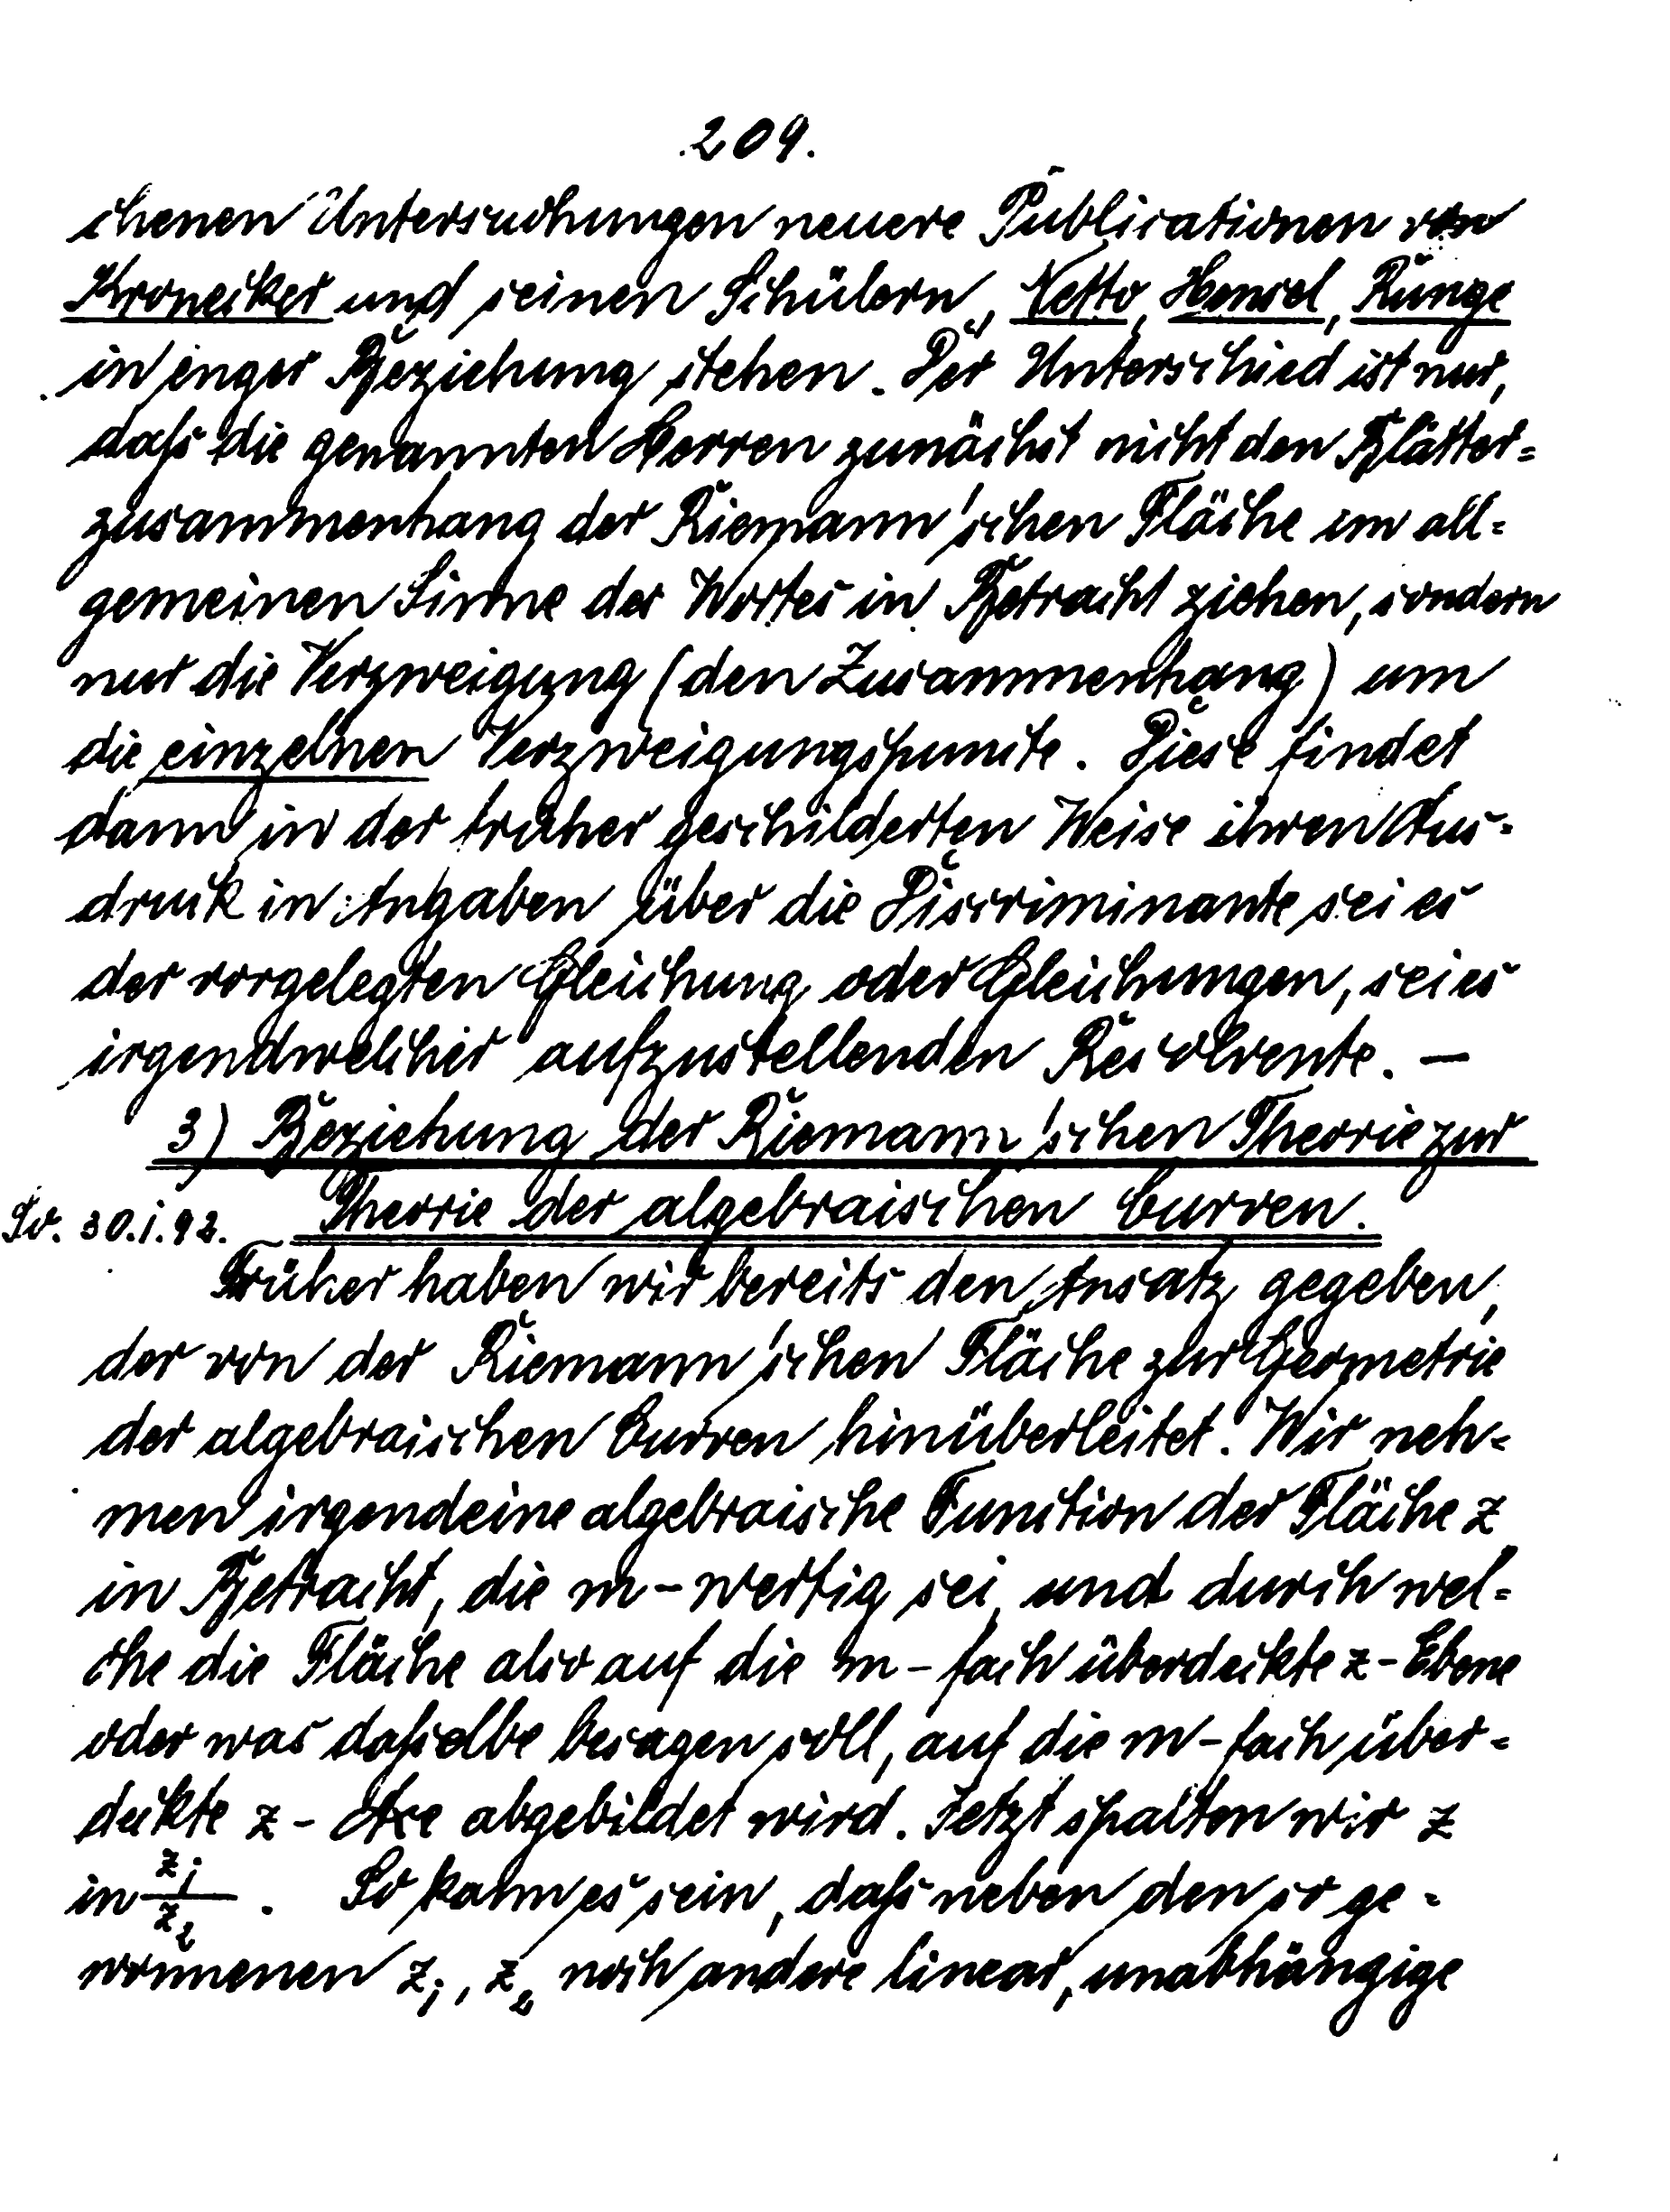 209.
chenen Untersuchungen neuere Publicationen von
Kronecker und seinen Schülern, Netto, Hensel, Runge
in enger Beziehung stehen. Der Unterschied ist nur,
daſs die genannten Herren zunächst nicht den Blätter=
zusammenhang der Riemann'schen Fläche im all=
gemeinen Sinne des Wortes in Betracht ziehen, sondern
nur die Verzweigung (den Zusammenhang) um
die einzelnen Verzweigungspuncte. Diese findet
dann in der früher geschilderten Weise ihren Aus=
druck in Angaben über die Discriminante sei es
der vorgelegten Gleichung oder Gleichungen, sei es
irgendwelcher aufzustellenden Resolvente. —
3) Beziehung der Riemann'schen Theorie zur
Theorie der algebraischen Curven.
So. 30.1.92.
Früher haben wir bereits den Ansatz gegeben,
der von der Riemann'schen Fläche zur Geometrie
der algebraischen Curven hinüberleitet. Wir neh=
men irgendeine algebraische Function der Fläche z
in Betracht, die m-wertig sei, und durch wel=
che die Fläche also auf die m-fach überdeckte z-Ebene
oder was daſselbe besagen soll, auf die m-fach über=
deckte z-Axe abgebildet wird. Jetzt spalten wir z
in z₁/z₂. So kann es sein, daſs neben den so ge=
wonnenen z₁, z₂ noch andere linear unabhängige